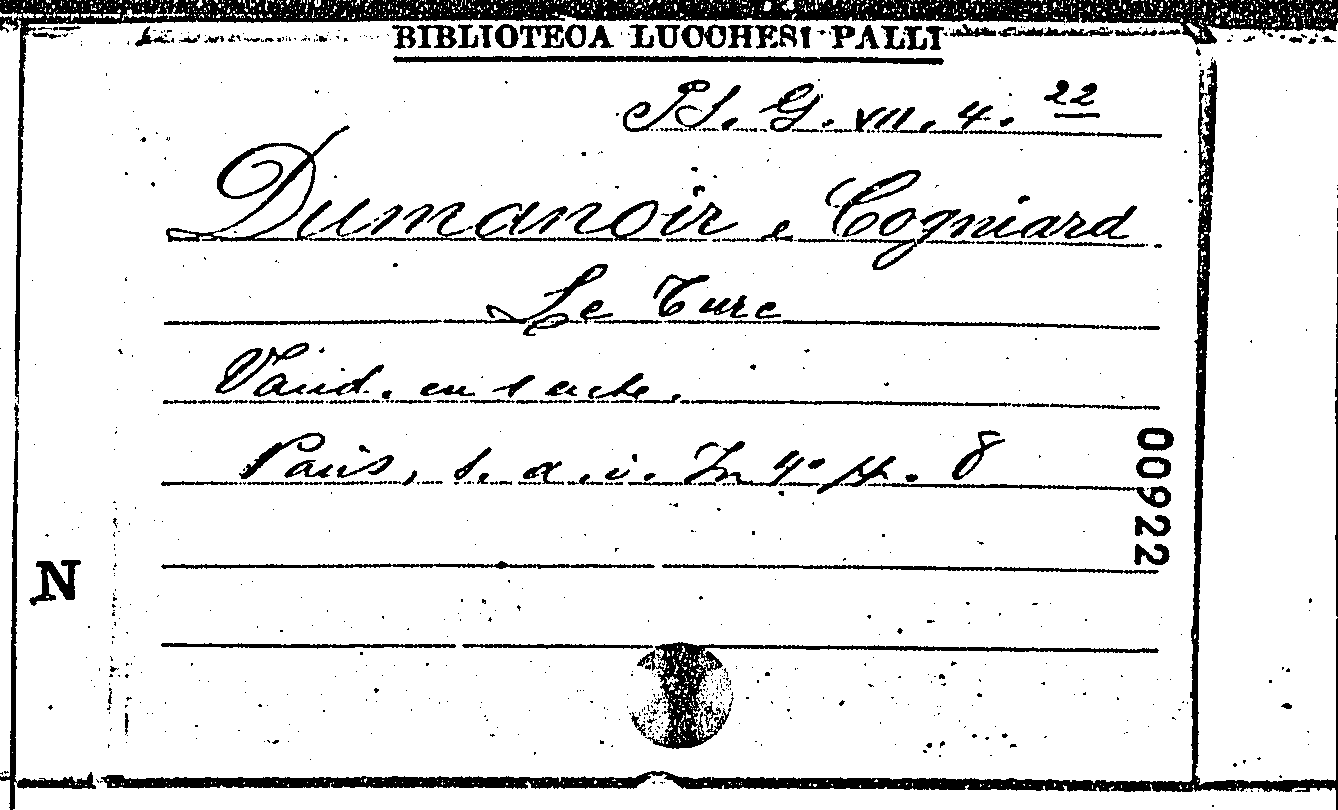 BIBLIOTECA LUCCHESI PALLI
G. VII. 4. 22
Dumanoir e Cogniard
Le Turc
Vaud. en 1 acte.
Paris, s. a. i. In 4° pp. 8
00922
N